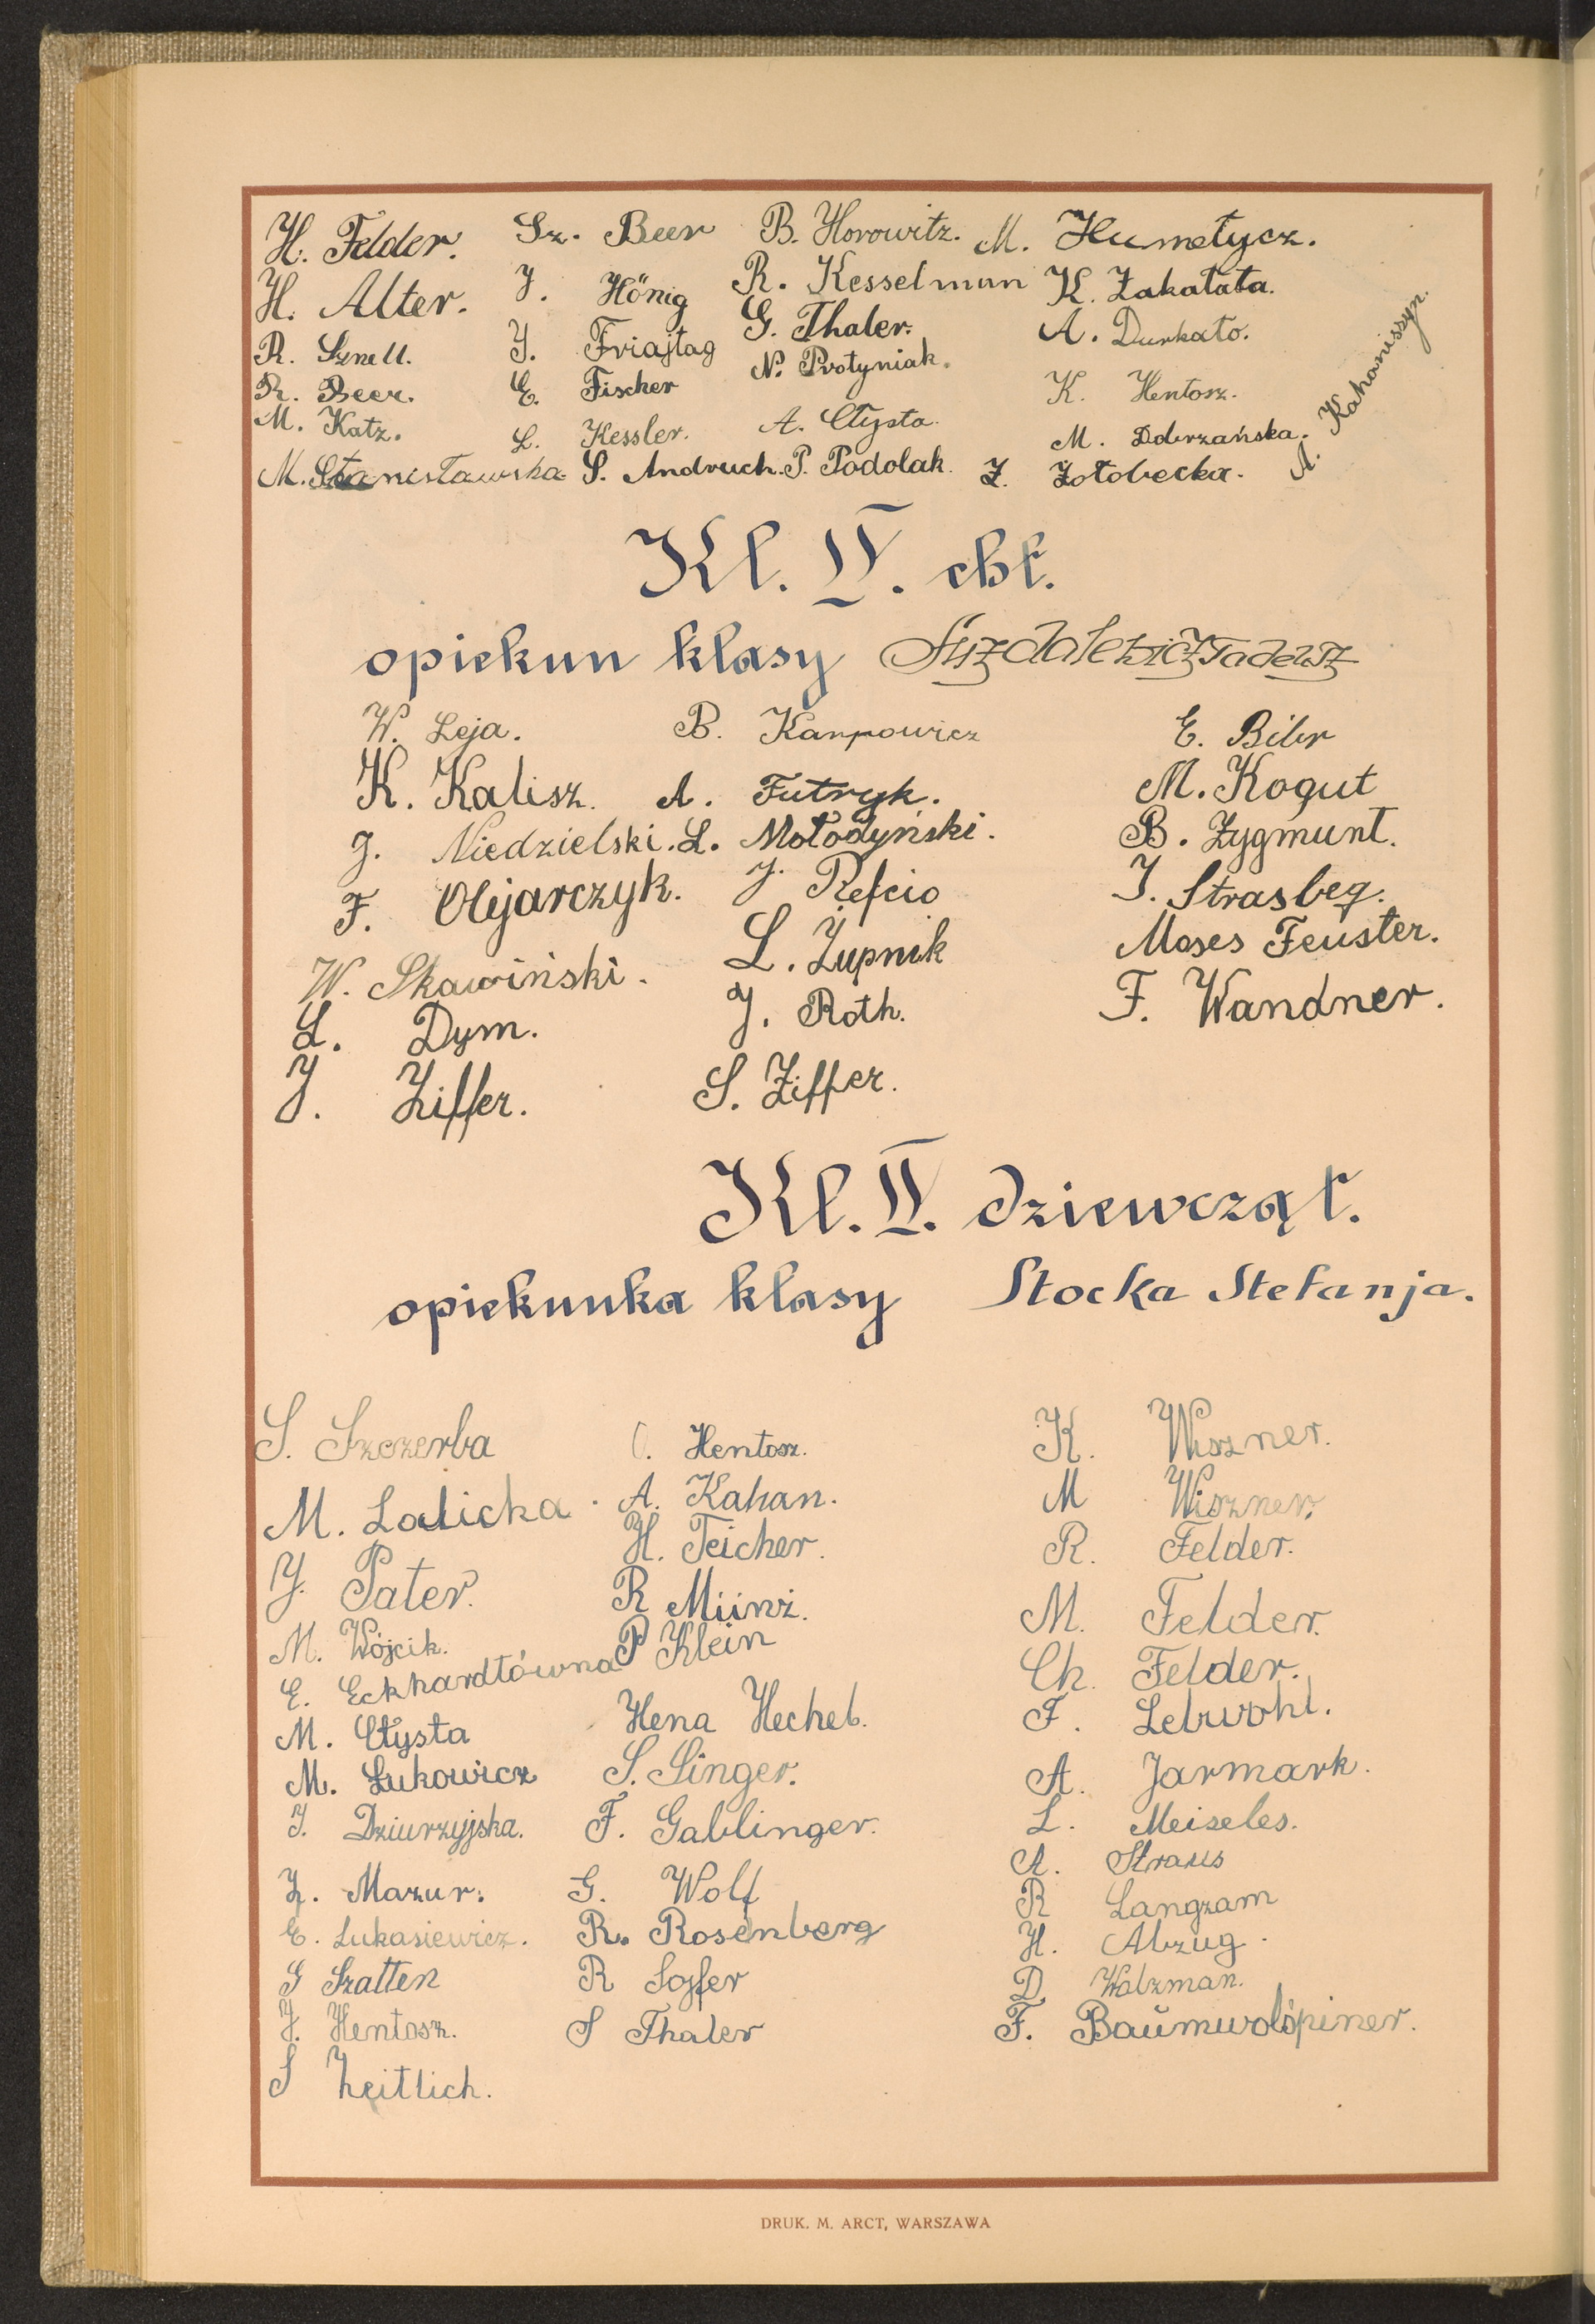 H. Felder. Sz. Beer B. Horowitz. M. Humetycz.
H. Alter. J. Hönig R. Kesselman K. Zakałata.
R. Sznell. J. Friajtag G. Thaler. A. Durkało.
R. Beer. E. Fischer N. Protyniak. K. Hentosz.
M. Katz. L. Kessler. A. Cłysta. M. Dobrzańska.
M. Stanisławska S. Andruch. P. Podolak. Z. Zołobecka. A. Kahaniszyn.
Kl. IV. chł.
opiekun klasy Suszdalewicz Tadeusz
W. Leja. B. Karpowicz E. Biber
K. Kalisz. A. Futryk. M. Kogut
J. Niedzielski. L. Mołodyński. B. Zygmunt.
F. Olejarczyk. J. Refcio J. Strasbeg.
W. Skawiński. L. Zupnik Moses Feuster.
L. Dym. J. Roth. F. Wandner.
J. Ziffer. S. Ziffer.
Kl. IV. dziewcząt.
opiekunka klasy Stocka Stefanja.
S. Szczerba O. Hentosz. K. Wiszner.
M. Lalicka. A. Kahan. M Wiszner.
J. Pater. H. Teicher. R. Felder.
M. Wójcik. R Münz. M. Felder.
E. Eckhardtówna P Klein Ch. Felder.
M. Cłysta Hena Hechel. F. Lebwohl.
M. Łukowicz S. Singer. A. Jarmark.
J. Dziurzyjska. F. Gablinger. L. Meiseles.
Z. Mazur. G. Wolf A. Straus
E. Łukasiewicz. R. Rosenberg R Langzam
G Szatten R Sojfer H. Abzug.
J. Hentosz. S Thaler D Walzman.
S Zeitlich. F. Baumwolspiner.
DRUK. M. ARCT, WARSZAWA